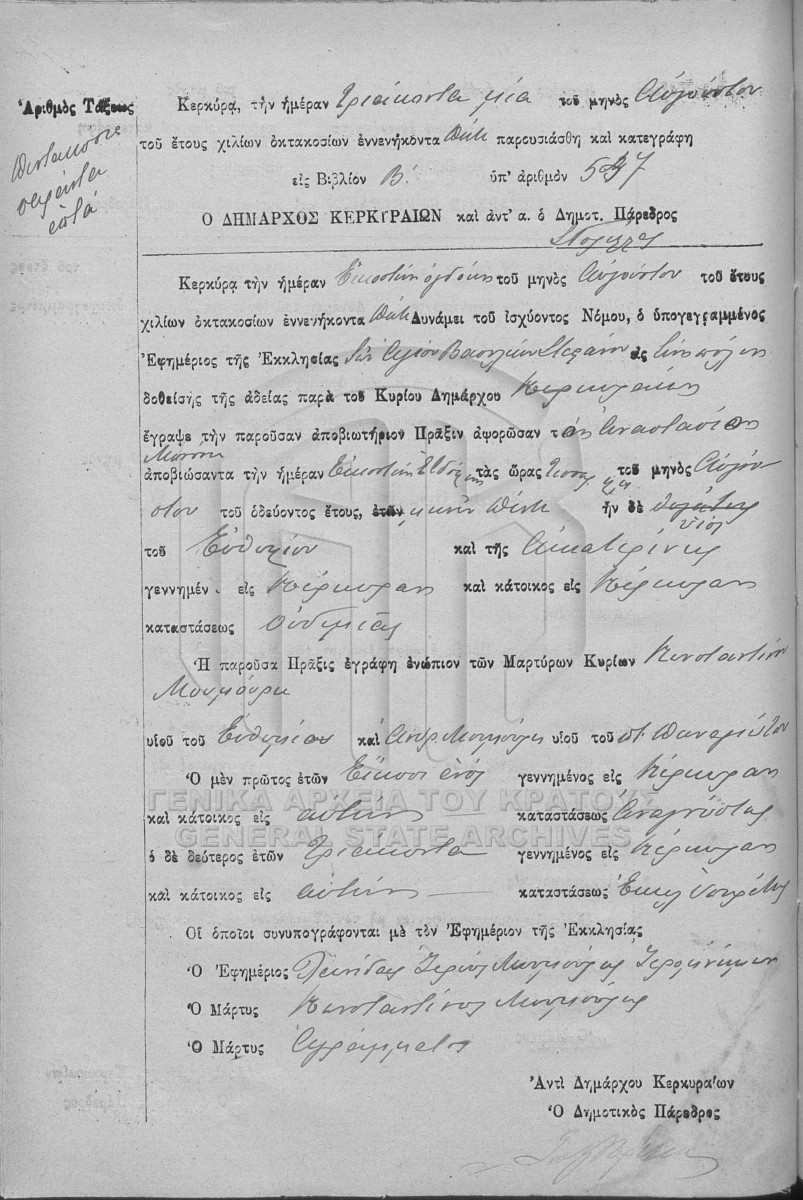 Ἀριθμὸς Τάξεως
πεντακόσια
σαράντα
ἑπτά
Κερκύρᾳ, τὴν ἡμέραν Τριάκοντα μία τοῦ μηνὸς Αὐγούστου
τοῦ ἔτους χιλίων ὀκτακοσίων ἐννενήκοντα πέντε παρουσιάσθη καὶ κατεγράφη
εἰς Βιβλίον Β. ὑπ' ἀριθμὸν 547
Ο ΔΗΜΑΡΧΟΣ ΚΕΡΚΥΡΑΙΩΝ καὶ ἀντ' α. ὁ Δημοτ. Πάρεδρος
Κερκύρᾳ τὴν ἡμέραν Εἰκοστὴν ὀγδόην τοῦ μηνὸς Αὐγούστου τοῦ ἔτους
χιλίων ὀκτακοσίων ἐννενήκοντα πέντε Δυνάμει τοῦ ἰσχύοντος Νόμου, ὁ ὑπογεγραμμένος
Ἐφημέριος τῆς Ἐκκλησίας τῶν Ἁγίων Βασιλείου Στεφάνου εἰς τὴν πόλιν
δοθείσης τῆς ἀδείας παρὰ τοῦ Κυρίου Δημάρχου Κερκυραίων
ἔγραψε τὴν παροῦσαν ἀποβιωτήριον Πρᾶξιν ἀφορῶσαν τ Ἀναστάσιον
ἀποβιώσαντα τὴν ἡμέραν Εἰκοστὴν Ἑβδόμην τὰς ὥρας τοῦ μηνὸς Αὐγού
στου τοῦ ὁδεύοντος ἔτους, ἐτῶν μηνῶν πέντε ἦν δὲ θυγάτηρ
υἱὸς
τοῦ Εὐθυμίου καὶ τῆς Αἰκατερίνης
γεννημέν εἰς Κέρκυραν καὶ κάτοικος εἰς Κέρκυραν
καταστάσεως οὐδεμιᾶς
Ἡ παροῦσα Πρᾶξις ἐγράφη ἐνώπιον τῶν Μαρτύρων Κυρίων Κωνσταντίνου
υἱοῦ τοῦ Εὐθυμίου καὶ υἱοῦ τοῦ Παναγιώτου
Ὁ μὲν πρῶτος ἐτῶν Εἴκοσι ἑνός γεννημένος εἰς Κέρκυραν
καὶ κάτοικος εἰς αὐτήν καταστάσεως Ἀναγνώστης
ὁ δὲ δεύτερος ἐτῶν Τριάκοντα γεννημένος εἰς Κέρκυραν
καὶ κάτοικος εἰς αὐτήν καταστάσεως Ἐκκλ Ὑπηρέτης
Οἱ ὁποῖοι συνυπογράφονται μὲ τὸν Ἐφημέριον τῆς Ἐκκλησίας
Ὁ Ἐφημέριος
Ὁ Μάρτυς Κωνσταντῖνος
Ὁ Μάρτυς Ἀγράμματος
Ἀντὶ Δημάρχου Κερκυραίων
Ὁ Δημοτικὸς Πάρεδρος
ΓΕΝΙΚΑ ΑΡΧΕΙΑ ΤΟΥ ΚΡΑΤΟΥΣ
GENERAL STATE ARCHIVES